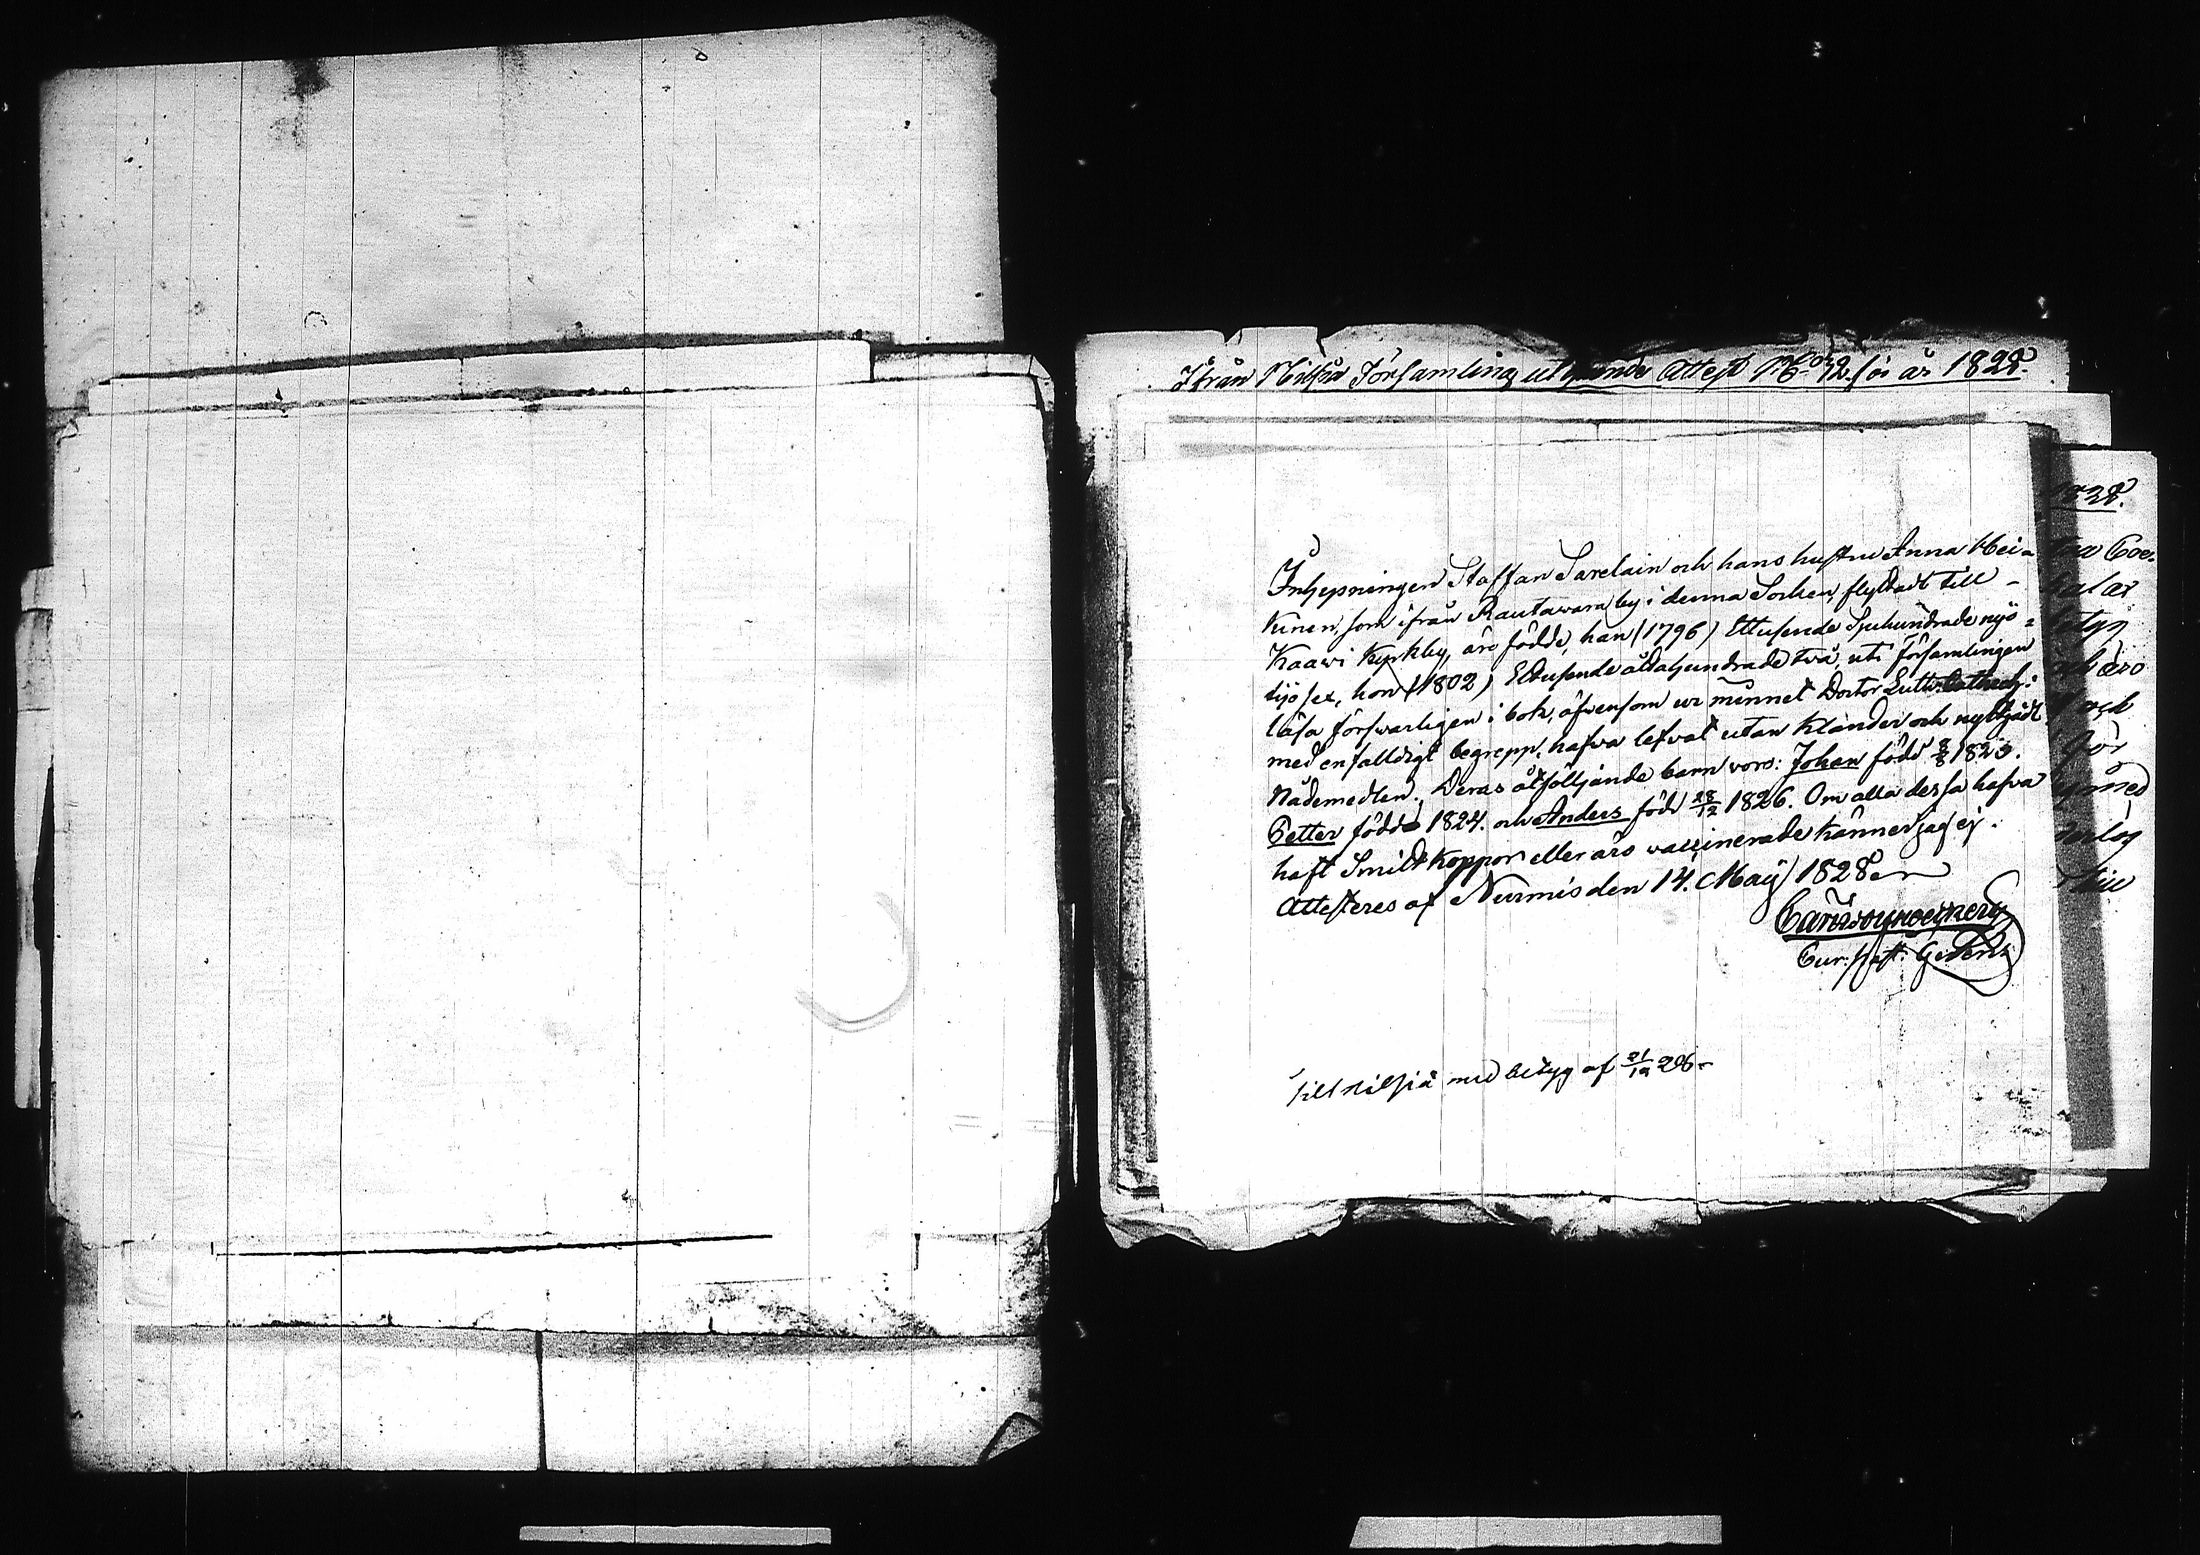 Ifrån Nilsiä Församling utgående Attest No 12. för år 1828.
Inhysningen Staffan Sarelain och hans hustru Anna Hei-
kinen, som ifrån Rautawara by i denna Socken, flyttadt till
Kaawi Kyrkby, äro födde, han (1796) Ettusende Sjuhundrade nijo=
tijo sex, hon (1802) Ettusende åttahundrade två, uti församlingen
läsa försvarligen i bok, äfvensom ur minnet Doctor Luth: Cathech:
med enfalldigt begrepp, hafva lefvat utan klander och nyttjadt
Nådemedlen. Deras åtföljande barn voro: Johan född 8/8 1823.
Petter född 1824. och Anders född 28/12 1826. Om alla dessa hafva
haft Smittkoppor eller äro vaccinerade känner jag ej.
Attesteres af Nurmis den 14. Maij 1828.
Cur: past:
till Nilsiä med betyg af 21/12 28
1828.
Coe-
äro
och
för